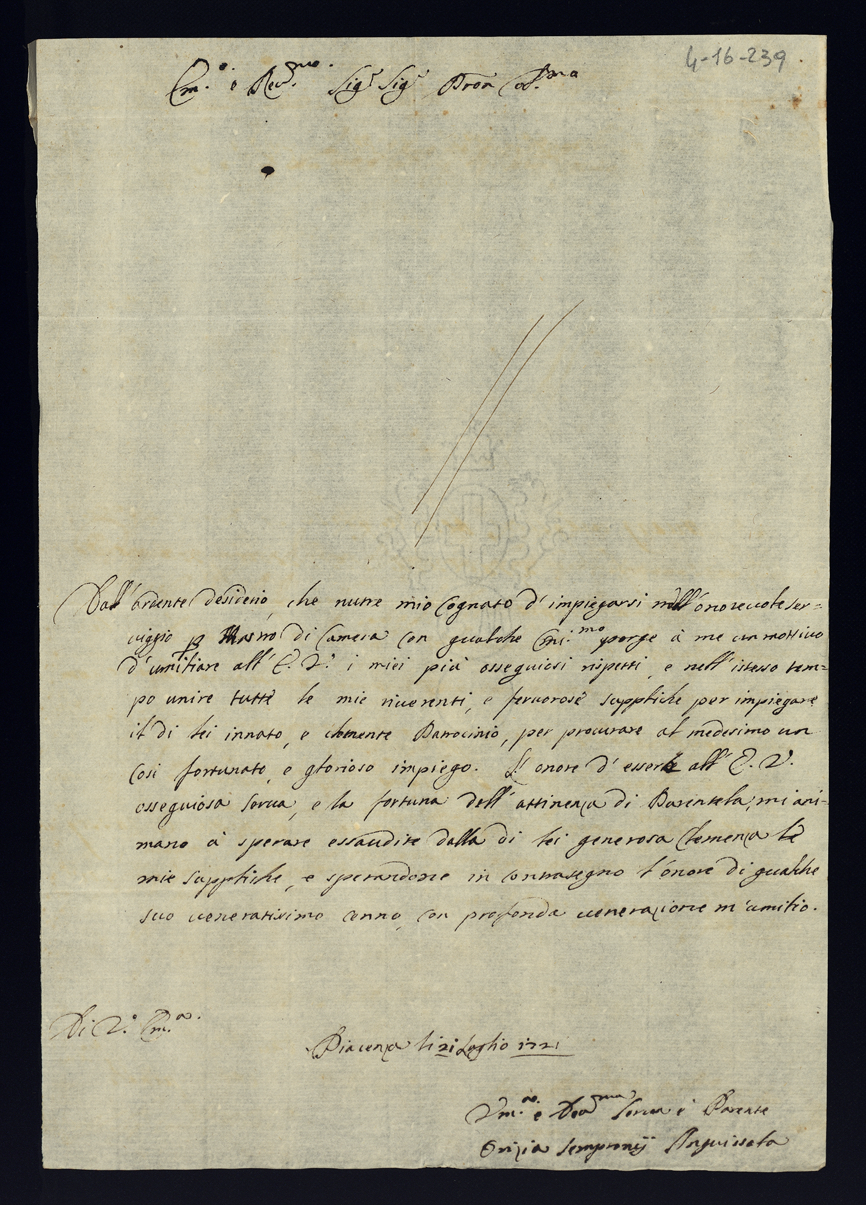 4-16-239.
Em.o e Rev.mo Sig.r Sig.r Pron Col.mo
Dall'ardente desiderio, che nutre mio Cognato d'impiegarsi nell'onorevole ser=
viggio p Mastro di Camera con qualche Emi.mo porge à me un mottivo
d'umiliare all'E. V. i miei più osseguiosi rispetti, e nell'istesso tem=
po unire tutte le mie riverenti, e fervorose suppliche per impiegare
il di lei innato, e clemente Patrocinio, per procurare al medesimo un
così fortunato, e glorioso impiego. L'onore d'essere all'E. V.
osseguiosa serva, e la fortuna dell'attinenza di Parentela, mi ani=
mano à sperare essaudite dalla di lei generosa Clemenza le
mie suppliche, e sperandone in contrasegno l'onore di qualche
suo veneratissimo cenno, con profonda venerazione m'umilio.
Di V.a Em.a
Piacenza li 21 Luglio 1721
Um.a e Dev.ma Serva e Parente
Orizia Sempronij Anguissola